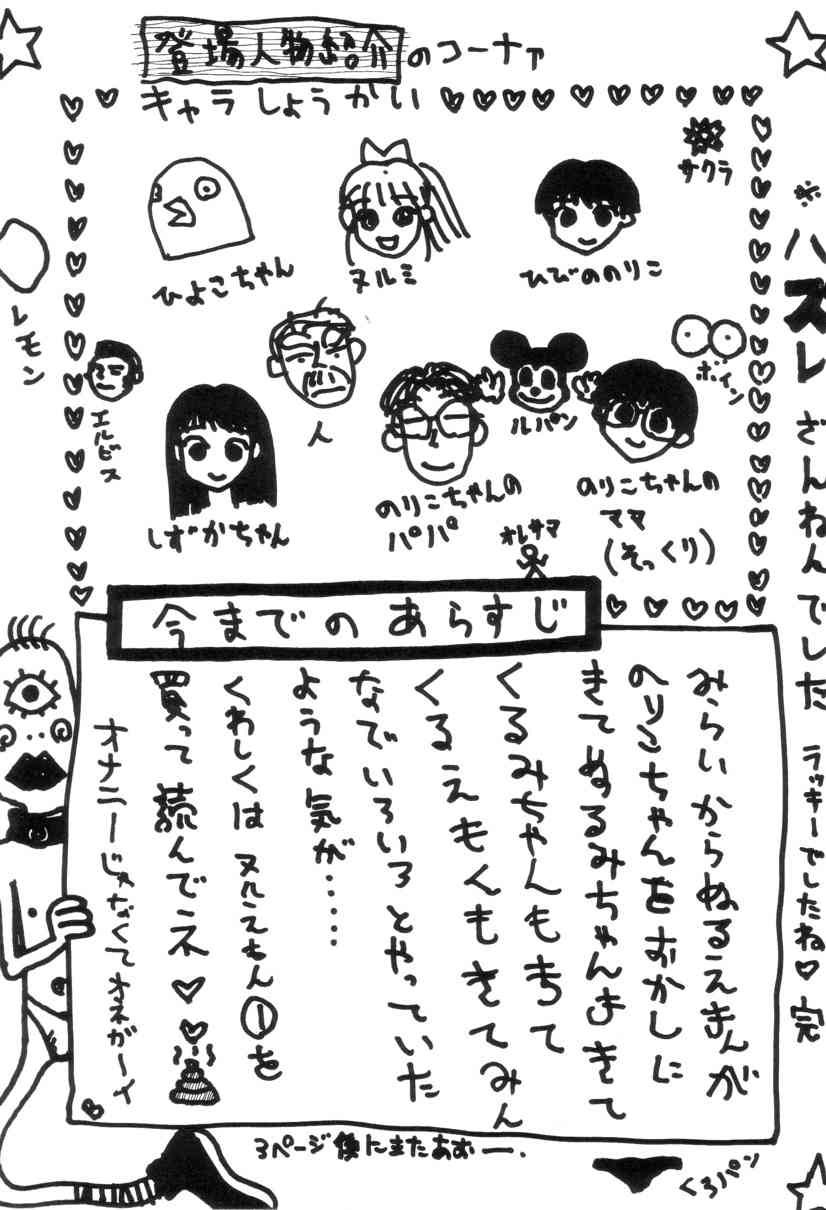 登場人物紹介のコーナァ
キャラしょうかい
サクラ
ひよこちゃん
ヌルミ
ひびののりこ
レモン
エルビス
人
ルパン
ボイン
しずかちゃん
のりこちゃんの
パパ
のりこちゃんの
ママ
(そっくり)
オレサマ
※ハズレ ざんねんでした ラッキーでしたね♡ 完
今までのあらすじ
みらいからぬるえもんが
のりこちゃんをおかしに
きてぬるみちゃんもきて
くるみちゃんもきて
くるえもくもきてみん
なでいろいろとやっていた
ような気が‥‥
くわしくはヌルえもん①を
買って読んでネ♡♡
オナニーじゃなくてオネガーイ
3ページ後にまたあおー.
くろパン